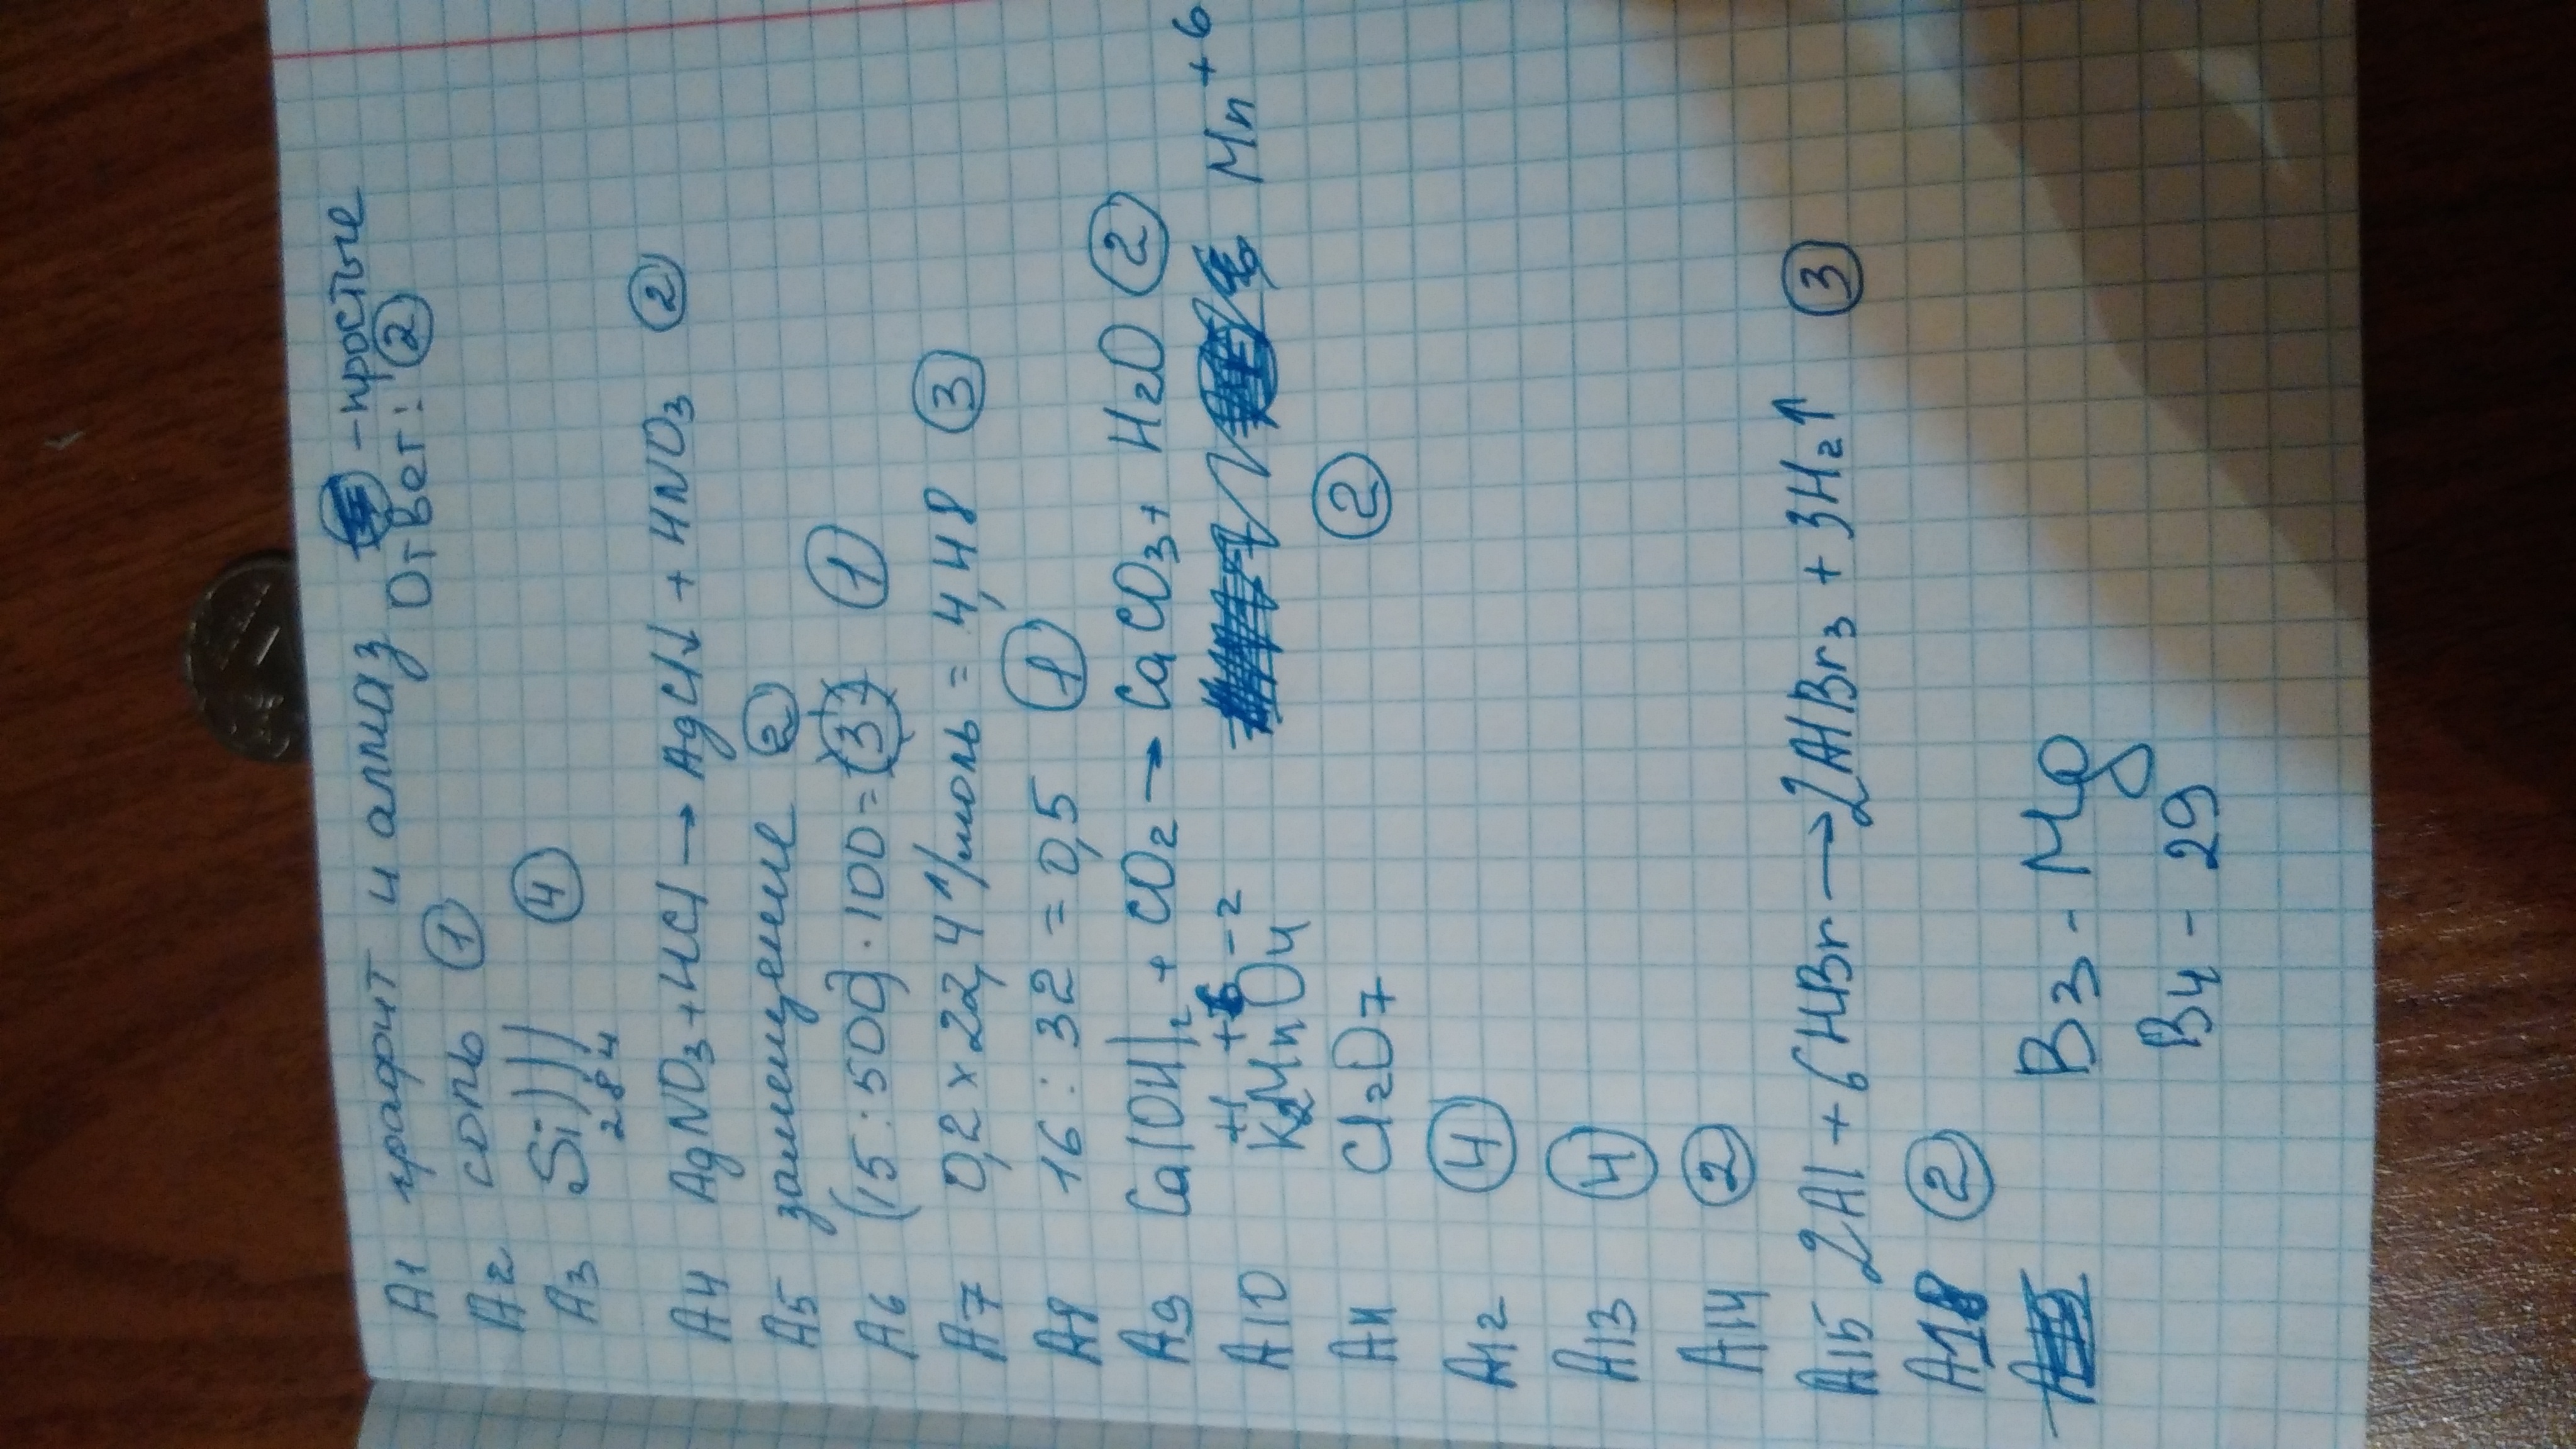 А1 графит и алмаз - простые
Ответ: 2
А2 соль 1
А3 Si))) 4
2 8 4
А4 AgNO3 + HCl → AgCl↓ + HNO3 2
А5 замещение 2
А6 (15:500)·100= 1
А7 0,2 x 22,4 л/моль = 4,48 3
А8 16 : 32 = 0,5 1
А9 Ca(OH)2 + CO2 → CaCO3 + H2O 2
+1 +6 -2
А10 K2MnO4 Mn+6
А11 Cl2O7 2
А12 4
А13 4
А14 2
А15 2Al + 6HBr → 2AlBr3 + 3H2↑ 3
А18 2
В3 - Mg
В4 - 29